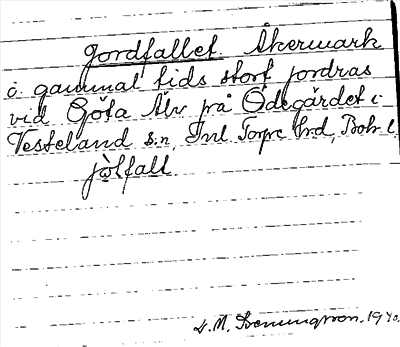 Jordfallet. Åkermark
å gammal tids stort jordras
vid Göta Älv på Ödegärdet i
Vesteland s:n, Inl Torpe hrd, Boh. l.
jòlfall
D. M. 1940.